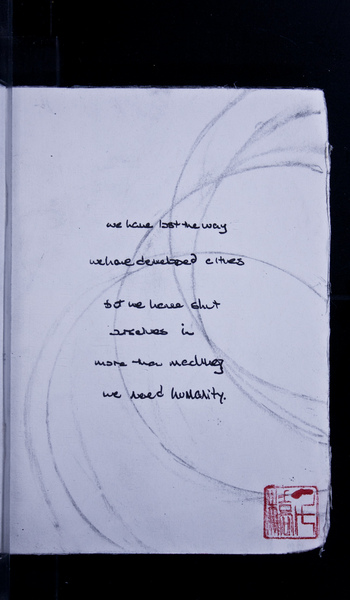 we have lost the way
we have developed cities
but we have shut
ourselves in
more than machinery
we need humanity.